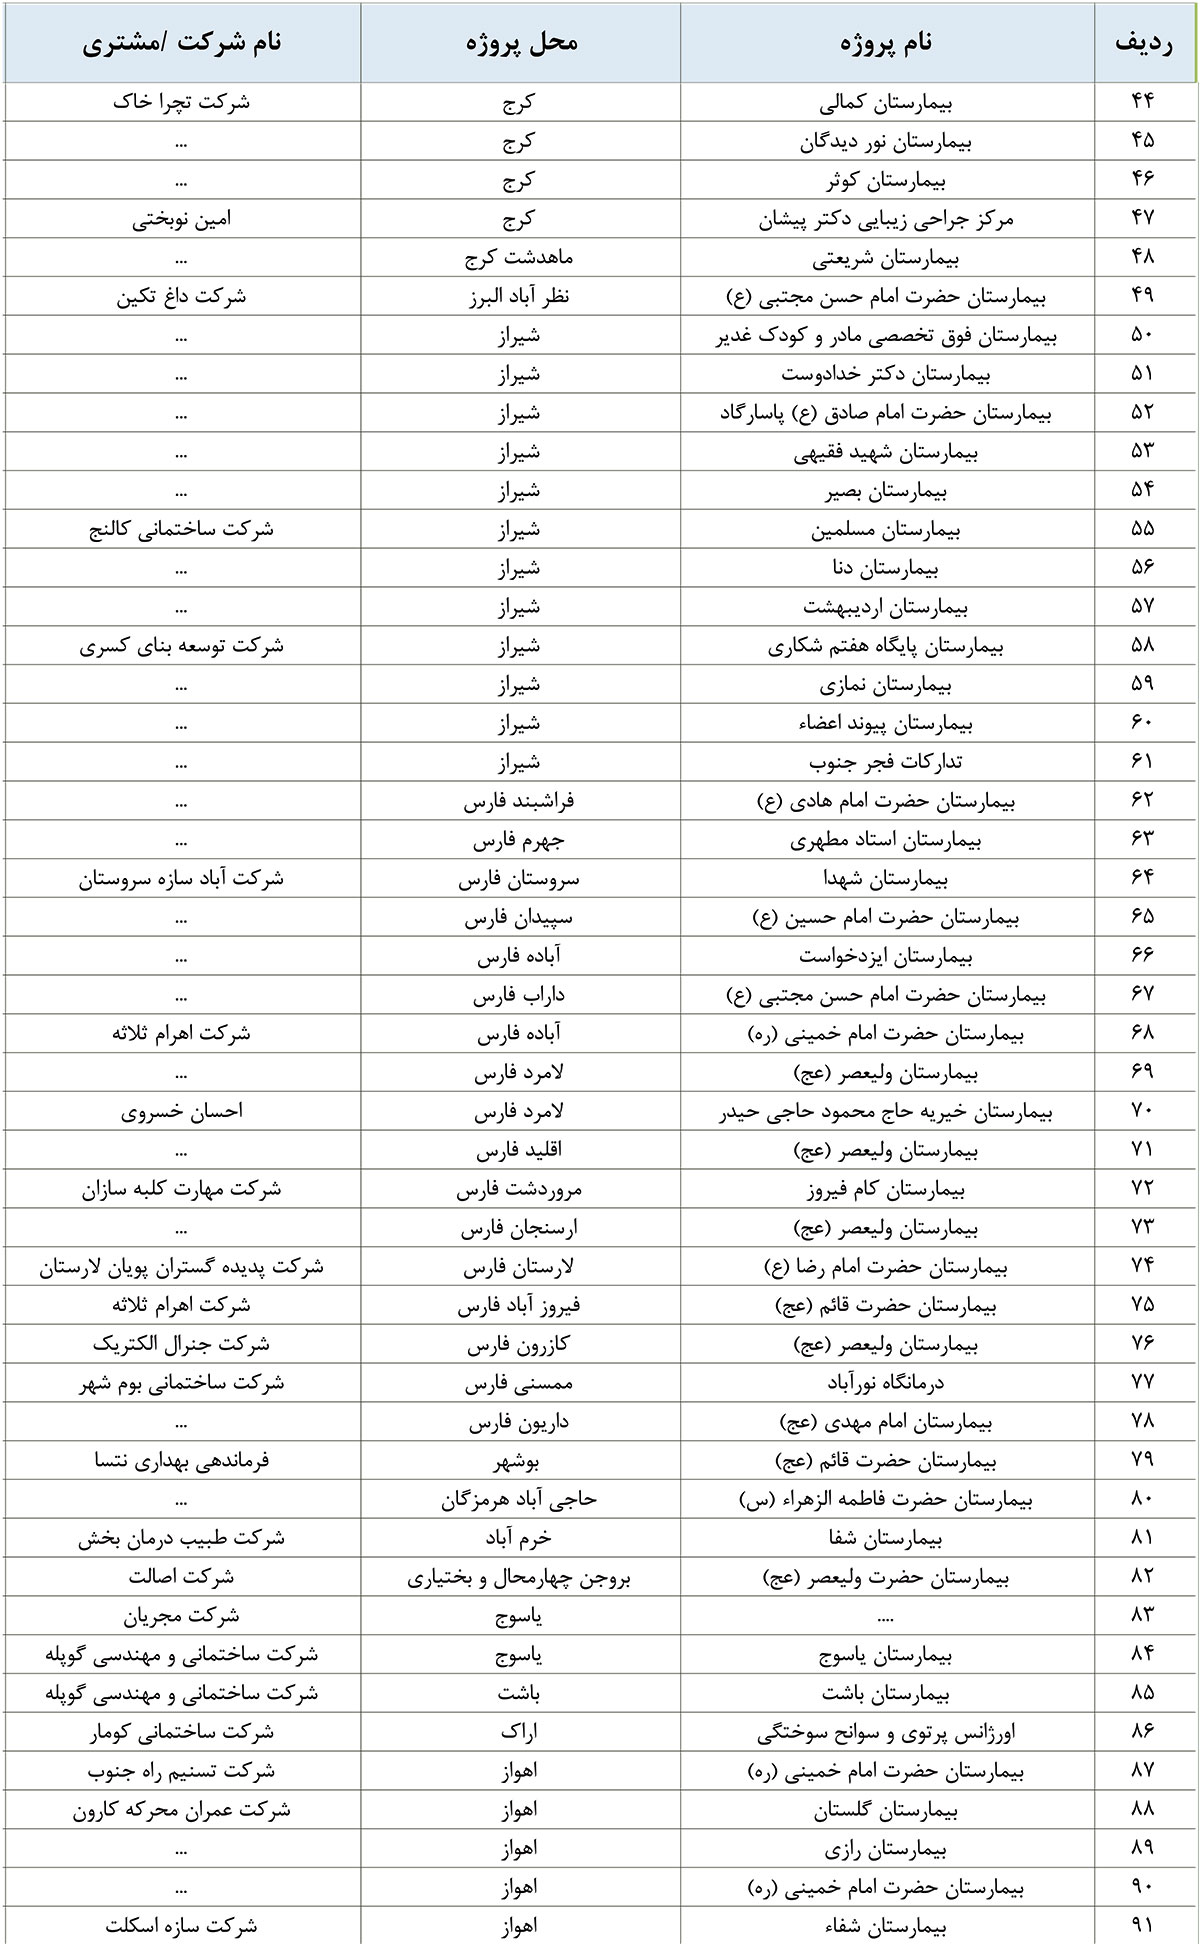 ردیف نام پروژه محل پروژه نام شرکت /مشتری
۴۴ بیمارستان کمالی کرج شرکت تچرا خاک
۴۵ بیمارستان نور دیدگان کرج ...
۴۶ بیمارستان کوثر کرج ...
۴۷ مرکز جراحی زیبایی دکتر پیشان کرج امین نوبختی
۴۸ بیمارستان شریعتی ماهدشت کرج ...
۴۹ بیمارستان حضرت امام حسن مجتبی (ع) نظر آباد البرز شرکت داغ تکین
۵۰ بیمارستان فوق تخصصی مادر و کودک غدیر شیراز ...
۵۱ بیمارستان دکتر خدادوست شیراز ...
۵۲ بیمارستان حضرت امام صادق (ع) پاسارگاد شیراز ...
۵۳ بیمارستان شهید فقیهی شیراز ...
۵۴ بیمارستان بصیر شیراز ...
۵۵ بیمارستان مسلمین شیراز شرکت ساختمانی کالنج
۵۶ بیمارستان دنا شیراز ...
۵۷ بیمارستان اردیبهشت شیراز ...
۵۸ بیمارستان پایگاه هفتم شکاری شیراز شرکت توسعه بنای کسری
۵۹ بیمارستان نمازی شیراز ...
۶۰ بیمارستان پیوند اعضاء شیراز ...
۶۱ تدارکات فجر جنوب شیراز ...
۶۲ بیمارستان حضرت امام هادی (ع) فراشبند فارس ...
۶۳ بیمارستان استاد مطهری جهرم فارس ...
۶۴ بیمارستان شهدا سروستان فارس شرکت آباد سازه سروستان
۶۵ بیمارستان حضرت امام حسین (ع) سپیدان فارس ...
۶۶ بیمارستان ایزدخواست آباده فارس ...
۶۷ بیمارستان حضرت امام حسن مجتبی (ع) داراب فارس ...
۶۸ بیمارستان حضرت امام خمینی (ره) آباده فارس شرکت اهرام ثلاثه
۶۹ بیمارستان ولیعصر (عج) لامرد فارس ...
۷۰ بیمارستان خیریه حاج محمود حاجی حیدر لامرد فارس احسان خسروی
۷۱ بیمارستان ولیعصر (عج) اقلید فارس ...
۷۲ بیمارستان کام فیروز مروردشت فارس شرکت مهارت کلبه سازان
۷۳ بیمارستان ولیعصر (عج) ارسنجان فارس ...
۷۴ بیمارستان حضرت امام رضا (ع) لارستان فارس شرکت پدیده گستران پویان لارستان
۷۵ بیمارستان حضرت قائم (عج) فیروز آباد فارس شرکت اهرام ثلاثه
۷۶ بیمارستان ولیعصر (عج) کازرون فارس شرکت جنرال الکتریک
۷۷ درمانگاه نورآباد ممسنی فارس شرکت ساختمانی بوم شهر
۷۸ بیمارستان امام مهدی (عج) داریون فارس ...
۷۹ بیمارستان حضرت قائم (عج) بوشهر فرماندهی بهداری نتسا
۸۰ بیمارستان حضرت فاطمه الزهراء (س) حاجی آباد هرمزگان ...
۸۱ بیمارستان شفا خرم آباد شرکت طبیب درمان بخش
۸۲ بیمارستان حضرت ولیعصر (عج) بروجن چهارمحال و بختیاری شرکت اصالت
۸۳ .... یاسوج شرکت مجریان
۸۴ بیمارستان یاسوج یاسوج شرکت ساختمانی و مهندسی گوپله
۸۵ بیمارستان باشت باشت شرکت ساختمانی و مهندسی گوپله
۸۶ اورژانس پرتوی و سوانح سوختگی اراک شرکت ساختمانی کومار
۸۷ بیمارستان حضرت امام خمینی (ره) اهواز شرکت تسنیم راه جنوب
۸۸ بیمارستان گلستان اهواز شرکت عمران محرکه کارون
۸۹ بیمارستان رازی اهواز ...
۹۰ بیمارستان حضرت امام خمینی (ره) اهواز ...
۹۱ بیمارستان شفاء اهواز شرکت سازه اسکلت